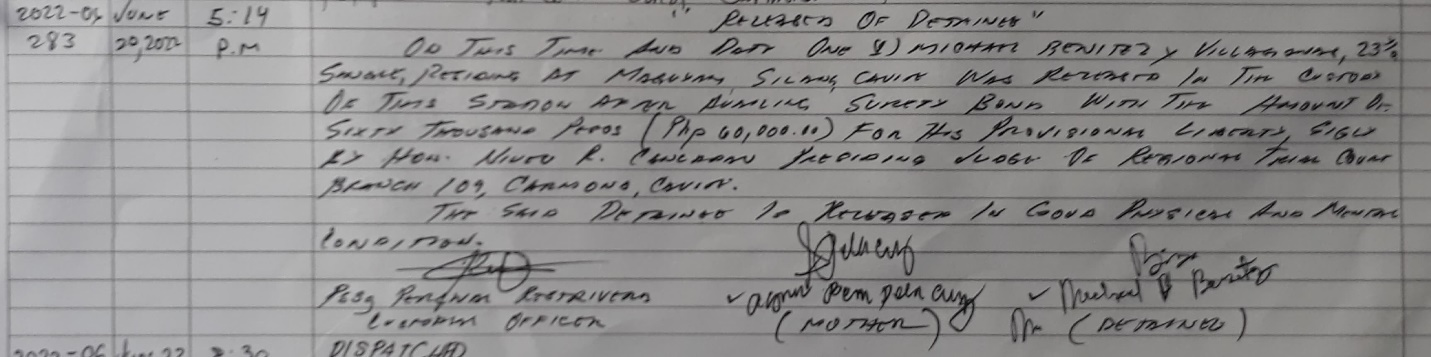 2022-06 JUNE 5:14 "RELEASED OF DETAINEE"
283 20,2022 P.M ON THIS TIME AND DATE ONE (1) MICHAEL BENITEZ Y 23
SINGLE, RESIDING AT SILANG, CAVITE WAS RELEASED IN THE CUSTODY
OF THIS STATION AFTER AVAILING SURETY BOND WITH THE AMOUNT OF
SIXTY THOUSAND PESOS (Php 60,000.00) FOR HIS PROVISIONAL LIBERTY, SIGN
BY HON. R. PRESIDING JUDGE OF REGIONAL TRIAL COURT
BRANCH 109, CARMONA, CAVITE.
THE SAID DETAINEE IS RELEASED IN GOOD PHYSICAL AND MENTAL
CONDITION.
PSSg Michael Benitez
CUSTODIAL OFFICER (MOTHER) (DETAINEE)
DISPATCHED